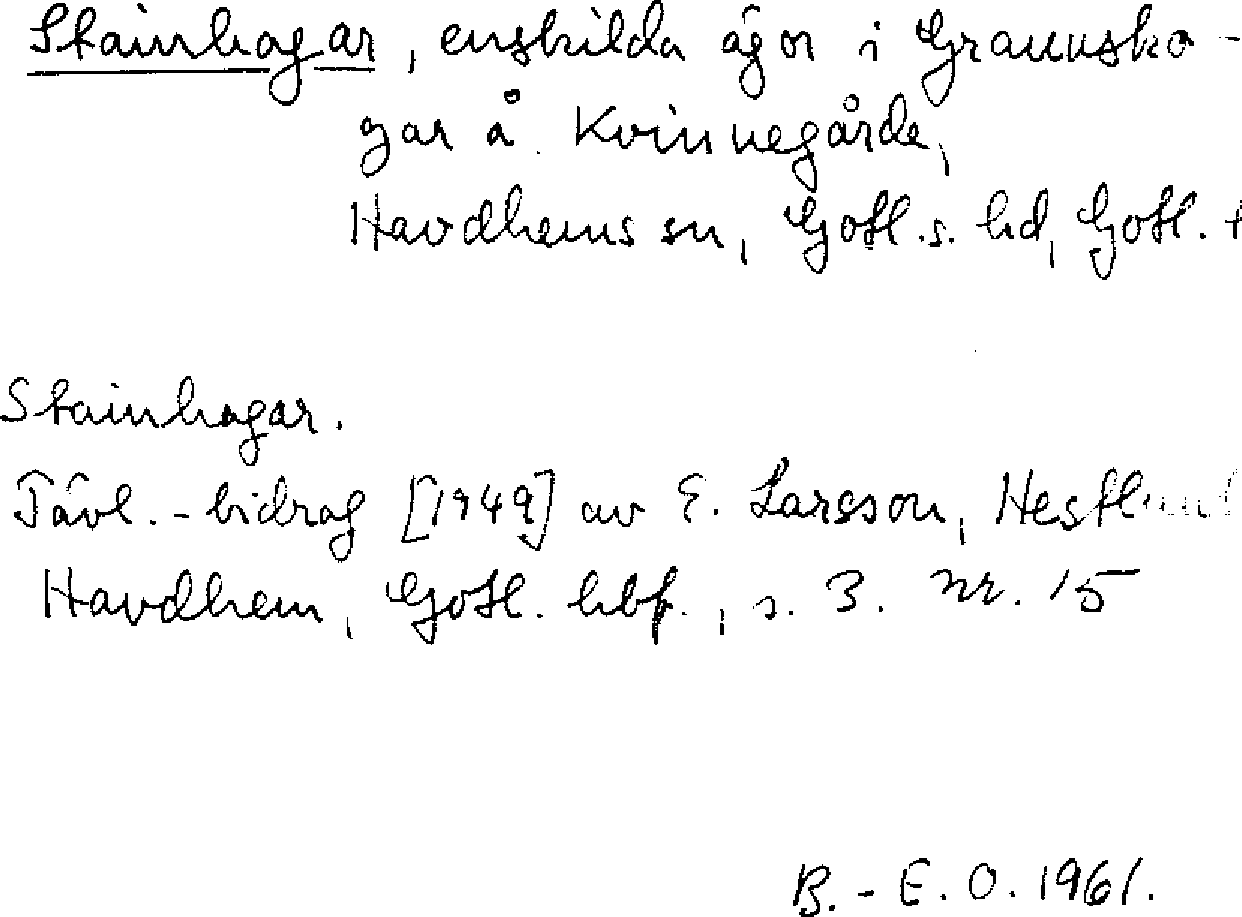 Stainhagar, enskilda ägor i Graunsko-
gar å Kvinnegårde,
Havdhems sn, Gotl. s. hd, Gotl.
Stainhagar.
Tävl.-bidrag [1949] av E. Larsson,
Havdhem, Gotl. hbf., s. 3. nr. 15
B.-E. O. 1961.